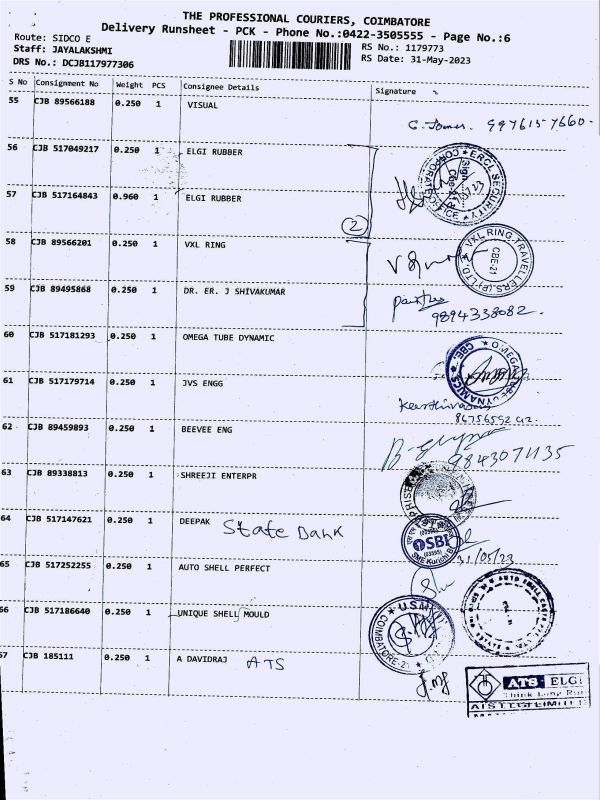 THE PROFESSIONAL COURIERS, COIMBATORE
Delivery Runsheet - PCK - Phone No.:0422-3505555 - Page No.:6
Route: SIDCO E
Staff: JAYALAKSHMI
RS No.: 1179773
DRS No.: DCJB117977306
RS Date: 31-May-2023
S No Consignment No Weight PCS Consignee Details Signature
55 CJB 89566188 0.250 1 VISUAL
56 CJB 517049217 0.250 1 ELGI RUBBER
57 CJB 517164843 0.960 1 ELGI RUBBER
2
58 CJB 89566201 0.250 1 VXL RING
VXL RING TRAVELLERS (P) LTD. CBE-21
59 CJB 89495868 0.250 1 DR. ER. J SHIVAKUMAR
9894338082.
60 CJB 517181293 0.250 1 OMEGA TUBE DYNAMIC
61 CJB 517179714 0.250 1 JVS ENGG
62 CJB 89459893 0.250 1 BEEVEE ENG
63 CJB 89338813 0.250 1 SHREEJI ENTERPR
64 CJB 517147621 0.250 1 DEEPAK State Bank
SBI
65 CJB 517252255 0.250 1 AUTO SHELL PERFECT
66 CJB 517186640 0.250 1 UNIQUE SHELL MOULD
COIMBATORE-21
67 CJB 185111 0.250 1 A DAVIDRAJ ATS
ATS ELGI